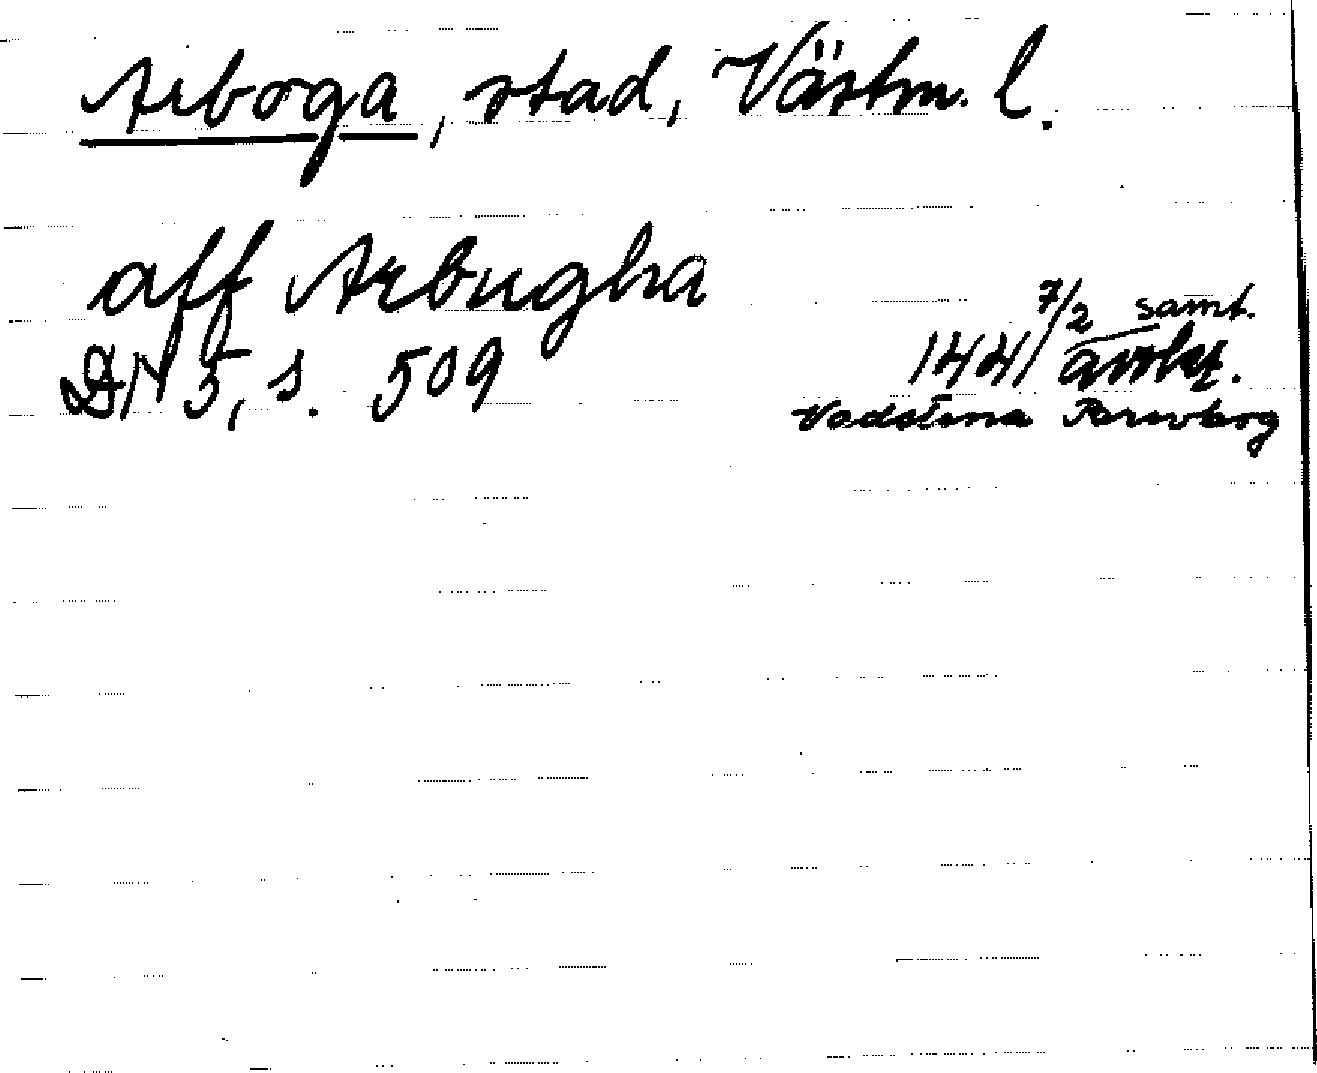 Arboga, stad, Västm. l.
aff Arbugha
7/2 samt.
DN 5, s. 509 1441 avskr.
Vadstena Brevbog